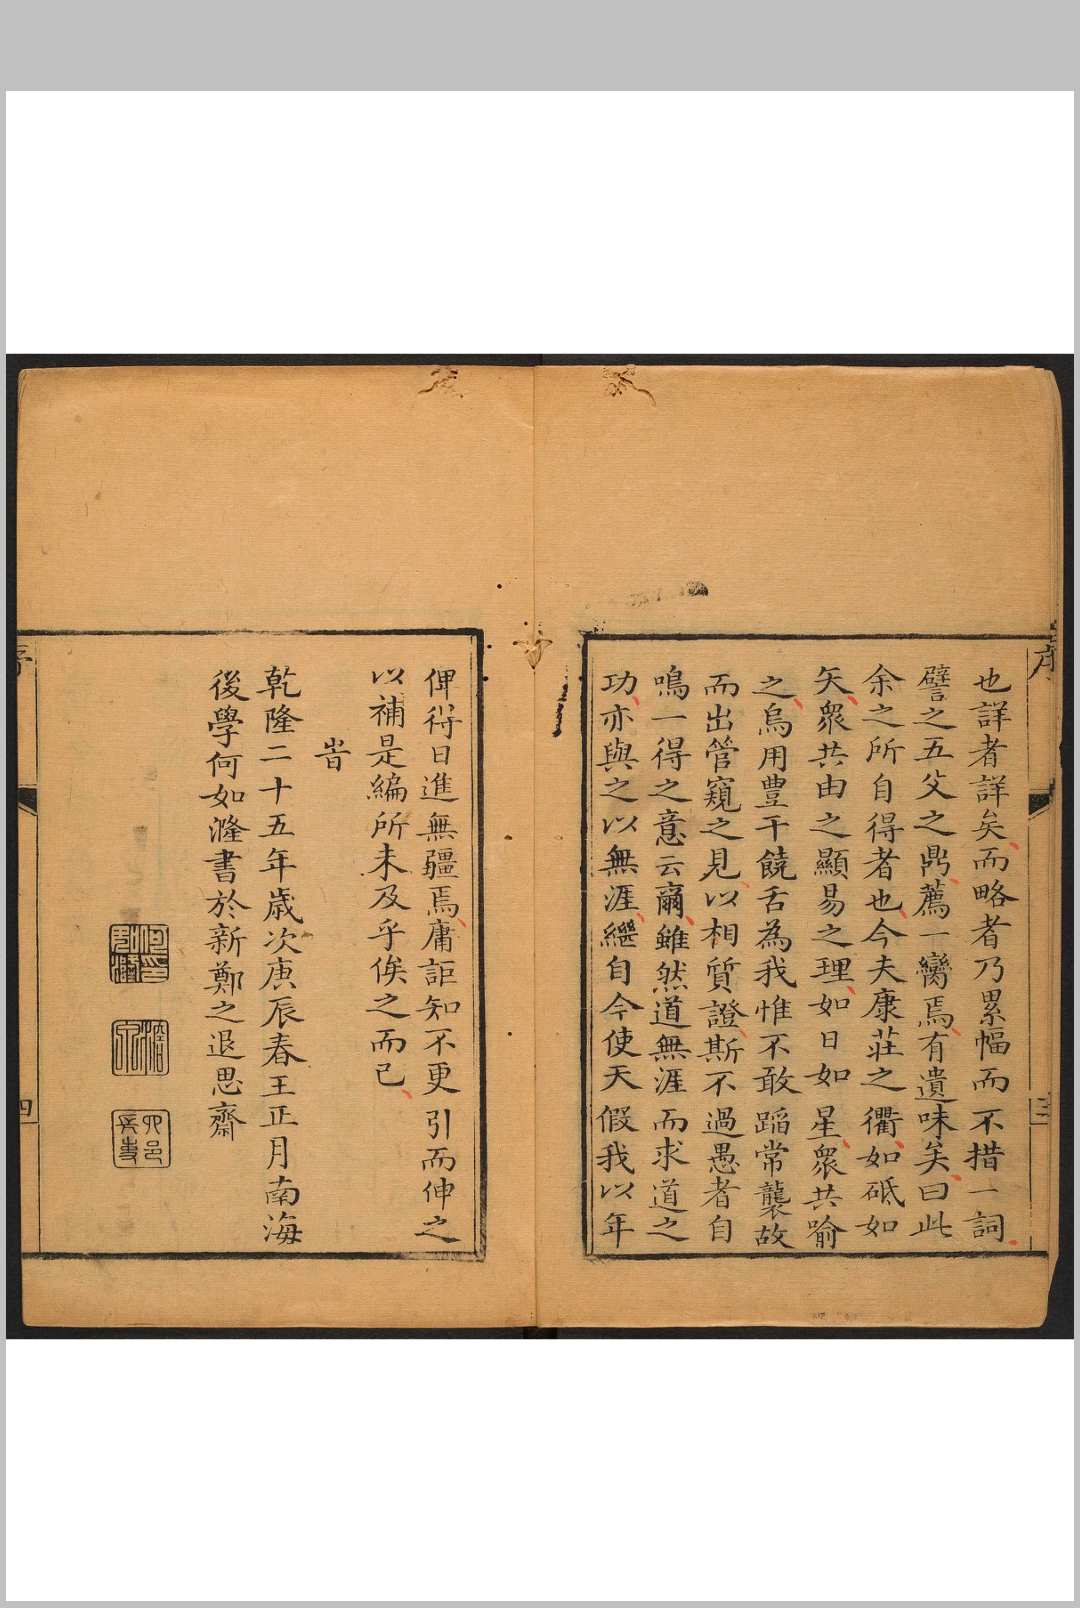 也詳者詳矣而略者乃累幅而不措一詞
譬之五父之鼎薦一臠焉有遺味矣曰此
余之所自得者也今夫康莊之衢如砥如
矢衆共由之顯易之理如日如星衆共喻
之烏用豐干饒舌為我惟不敢蹈常襲故
而出管窺之見以相質證斯不過愚者自
鳴一得之意云爾雖然道無涯而求道之
功亦與之以無涯繼自今使天假我以年
俾得日進無疆焉庸詎知不更引而伸之
以補是編所未及乎俟之而已
旹
乾隆二十五年歳次庚辰春王正月南海
後學何如漋書於新鄭之退思齋
序
三
四